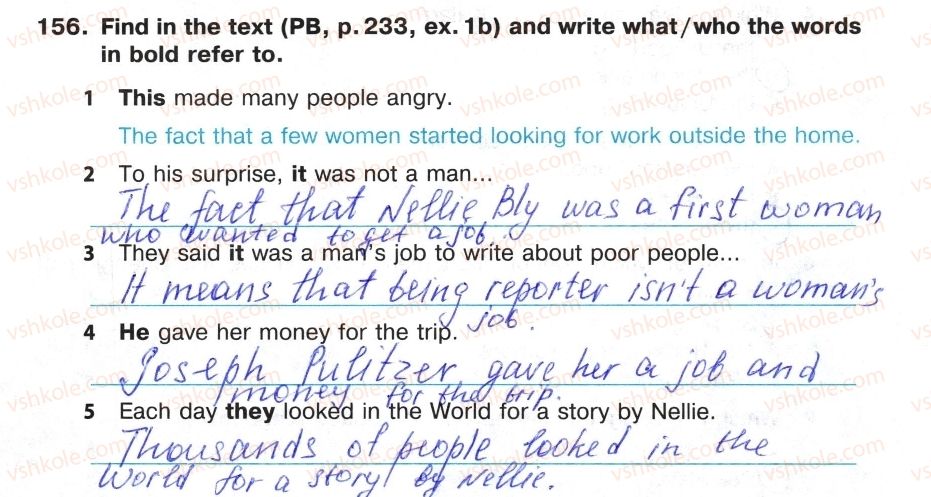 156. Find in the text (PB, p. 233, ex. 1b) and write what/who the words
in bold refer to.
1 This made many people angry.
The fact that a few women started looking for work outside the home.
2 To his surprise, it was not a man...
The fact that Nellie Bly was a first woman
who wanted to get a job.
3 They said it was a man's job to write about poor people...
It means that being reporter isn't a woman's
job.
4 He gave her money for the trip.
Joseph Pulitzer gave her a job and
money for the trip.
5 Each day they looked in the World for a story by Nellie.
Thousands of people looked in the
World for a story by Nellie.
vshkole.com